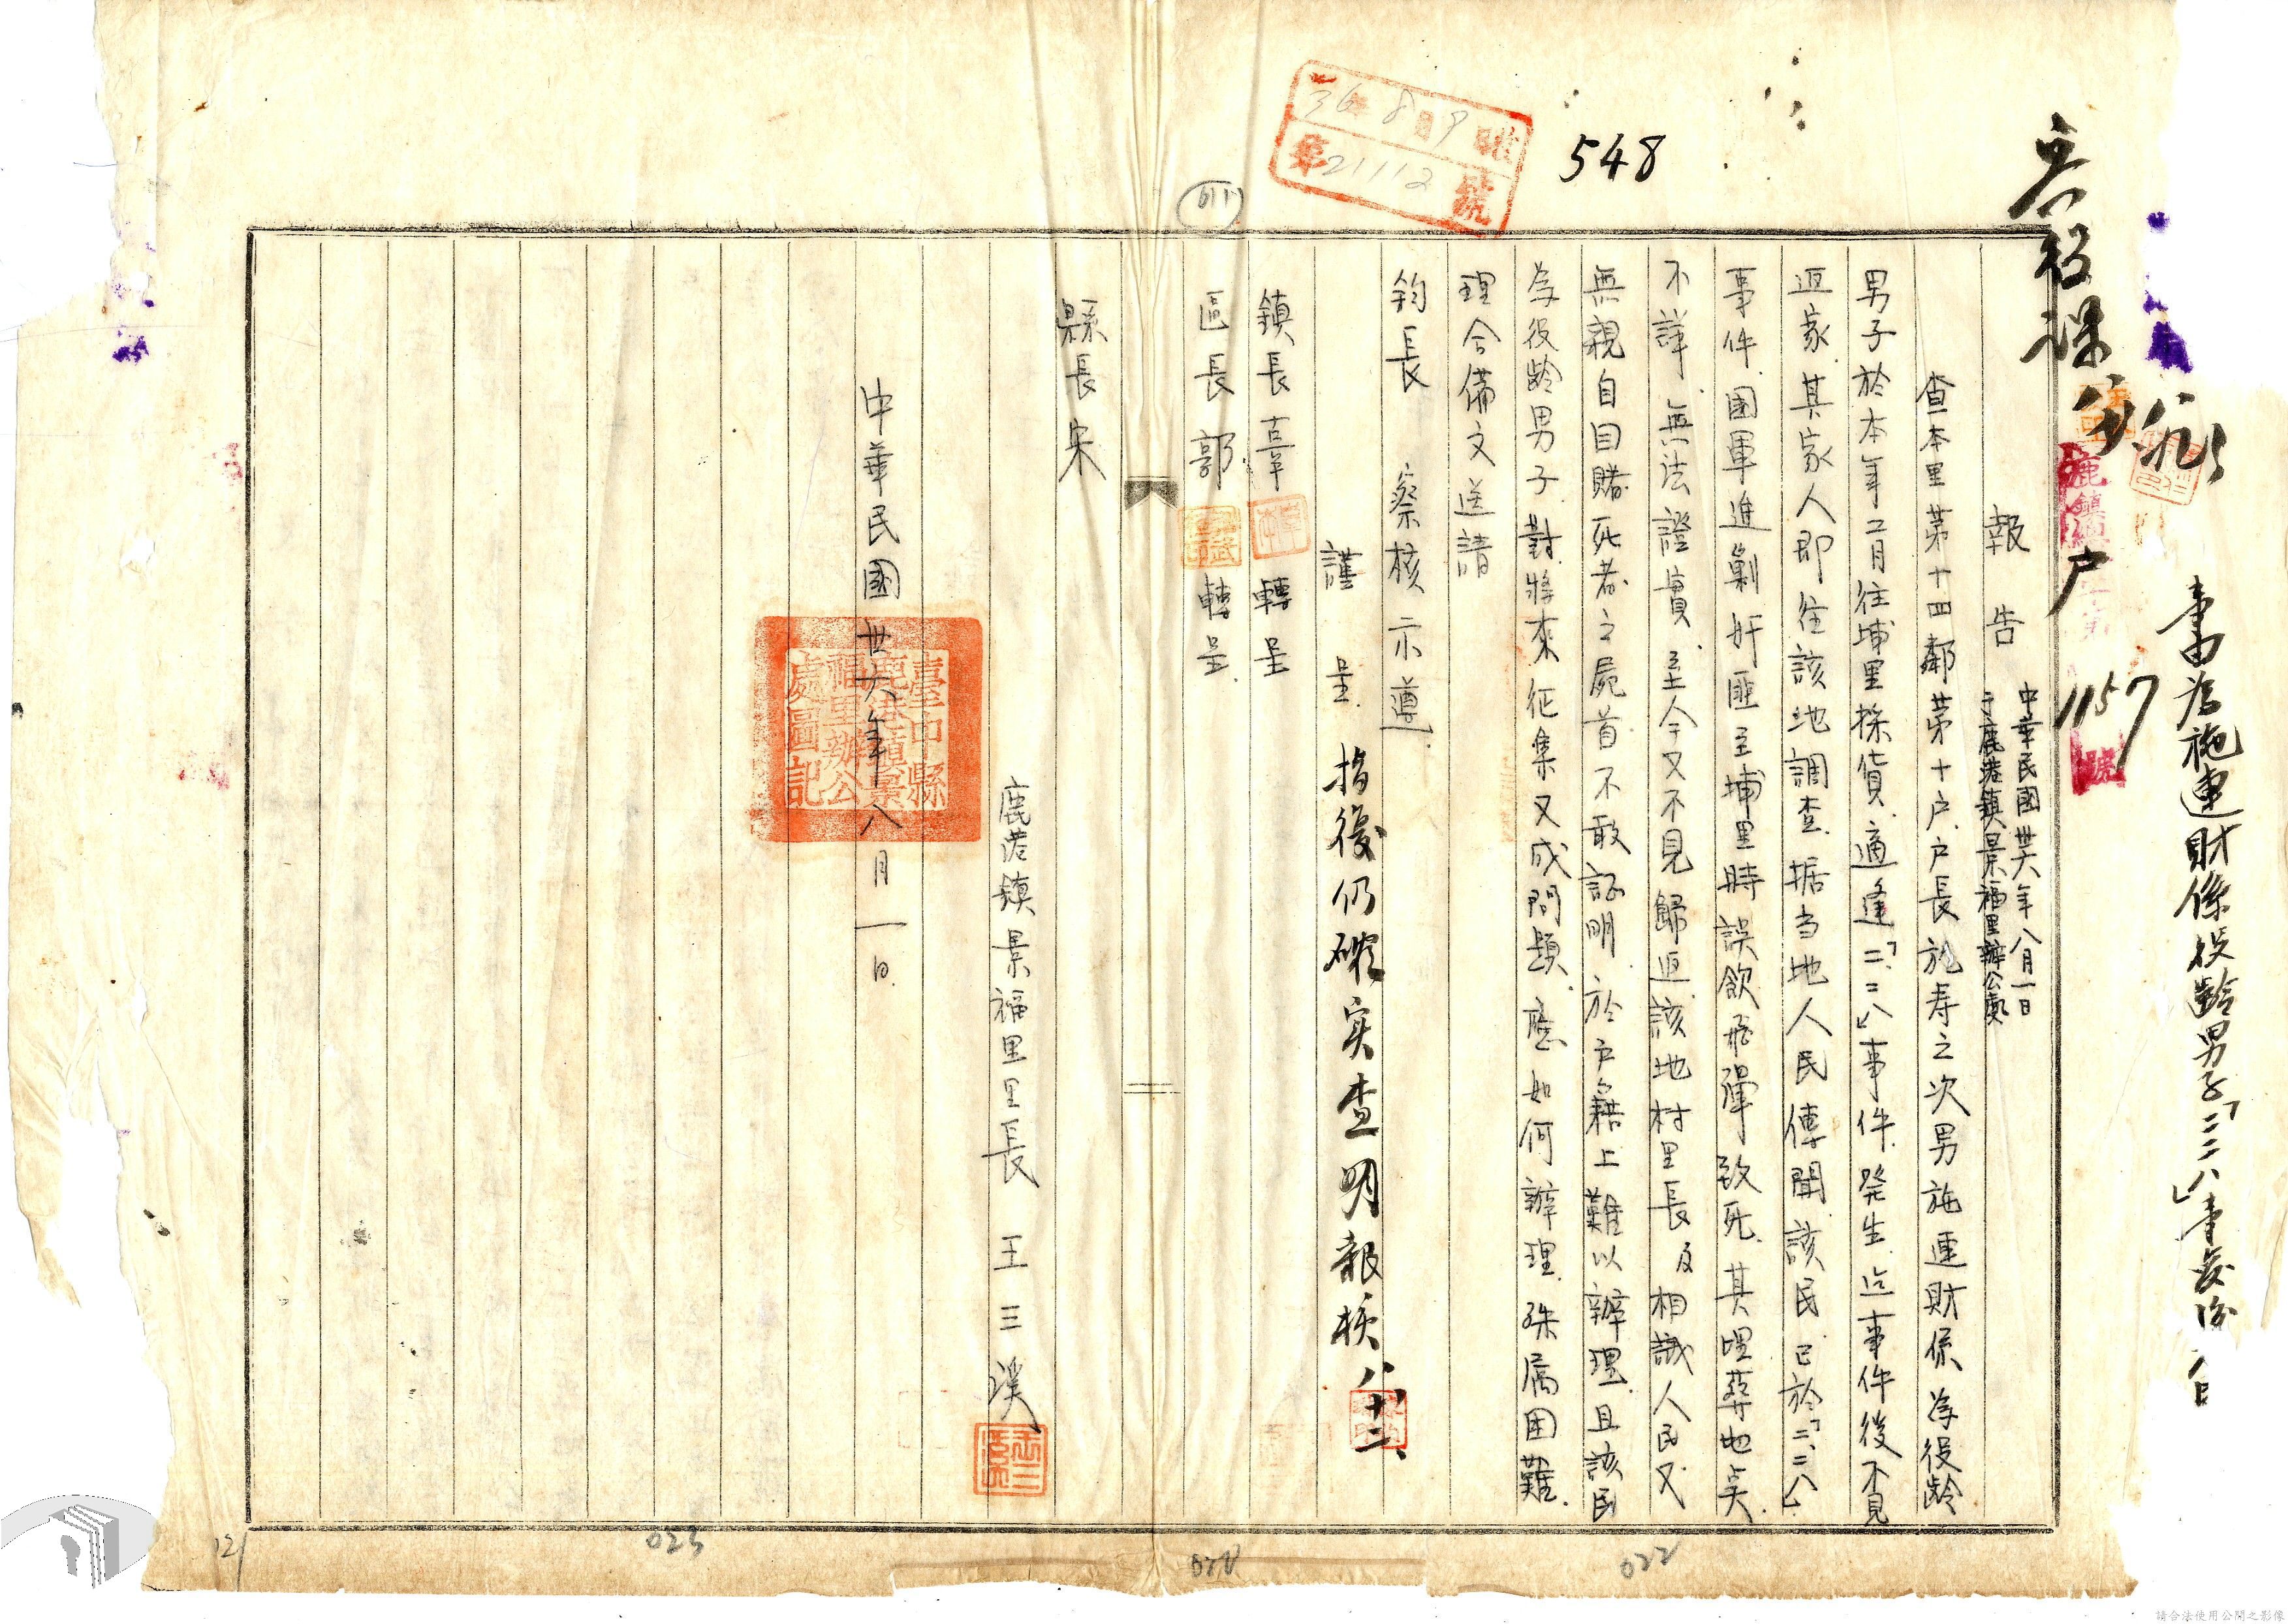 兵役課
事由 為施連財係役齡男子「二二八」事變後
報告 中華民國卅六年八月一日
于鹿港鎮景福里辦公處
查本里第十四鄰第十户户長施寿之次男施連財係為役齡
男子於本年二月往埔里採貨適逢「二二八」事件発生迄事件後不見
返家其家人即往該地調查据当地人民傳聞該民已於「二二八」
事件國軍進剿奸匪至埔里時誤飲飛彈致死其埋葬地点
不詳無法證實至今又不見歸返該地村里長及相識人民又
無親自目睹死者之屍首不敢証明於户籍上難以辦理且該民
為役齡男子對將來征集又成問題應如何辦理殊属困難
理合備文送請
鈞長 察核示遵
謹呈
指復仍確实查明報核 八十二
鎮長辜 轉呈
區長郭 轉呈
縣長宋
鹿港鎮景福里里長 王三漢
中華民國卅六年八月一日
臺中縣鹿港鎮景福里辦公處圖記
36年8月9日
第21112號
548
户
1157
號
023
022
請合法使用公開之影像